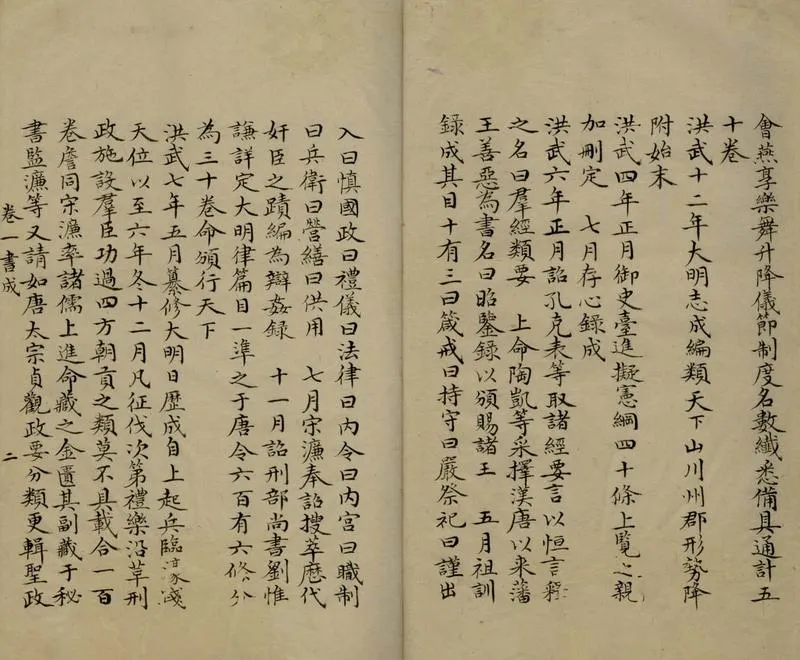 會燕享樂舞升降儀節制度名數纖悉備具通計五
十卷
洪武十二年大明志成編類天下山川州郡形勢降
附始末
洪武四年正月御史臺進擬憲綱四十條上覽之親
加刪定　七月存心錄成
洪武六年正月詔孔克表等取諸經要言以恒言釋
之名曰羣經類要　上命陶凱等采擇漢唐以來藩
王善惡為書名曰昭鑒錄以頒賜諸王　五月祖訓
錄成其目十有三曰箴戒曰持守曰嚴祭祀曰謹出
入曰慎國政曰禮儀曰法律曰内令曰内宮曰職制
曰兵衛曰營繕曰供用　七月宋濂奉詔搜萃歷代
奸臣之蹟編為辯姦録　十一月詔刑部尚書劉惟
謙詳定大明律篇目一準之于唐令六百有六條分
為三十卷命頒行天下
洪武七年五月纂修大明日歷成自上起兵臨濠踐
天位以至六年冬十二月凡征伐次第禮樂沿革刑
政施設羣臣功過四方朝貢之類莫不具載合一百
卷詹同宋濂率諸儒上進命藏之金匱其副藏于秘
書監濂等又請如唐太宗貞觀政要分類更輯聖政
卷一書成　二